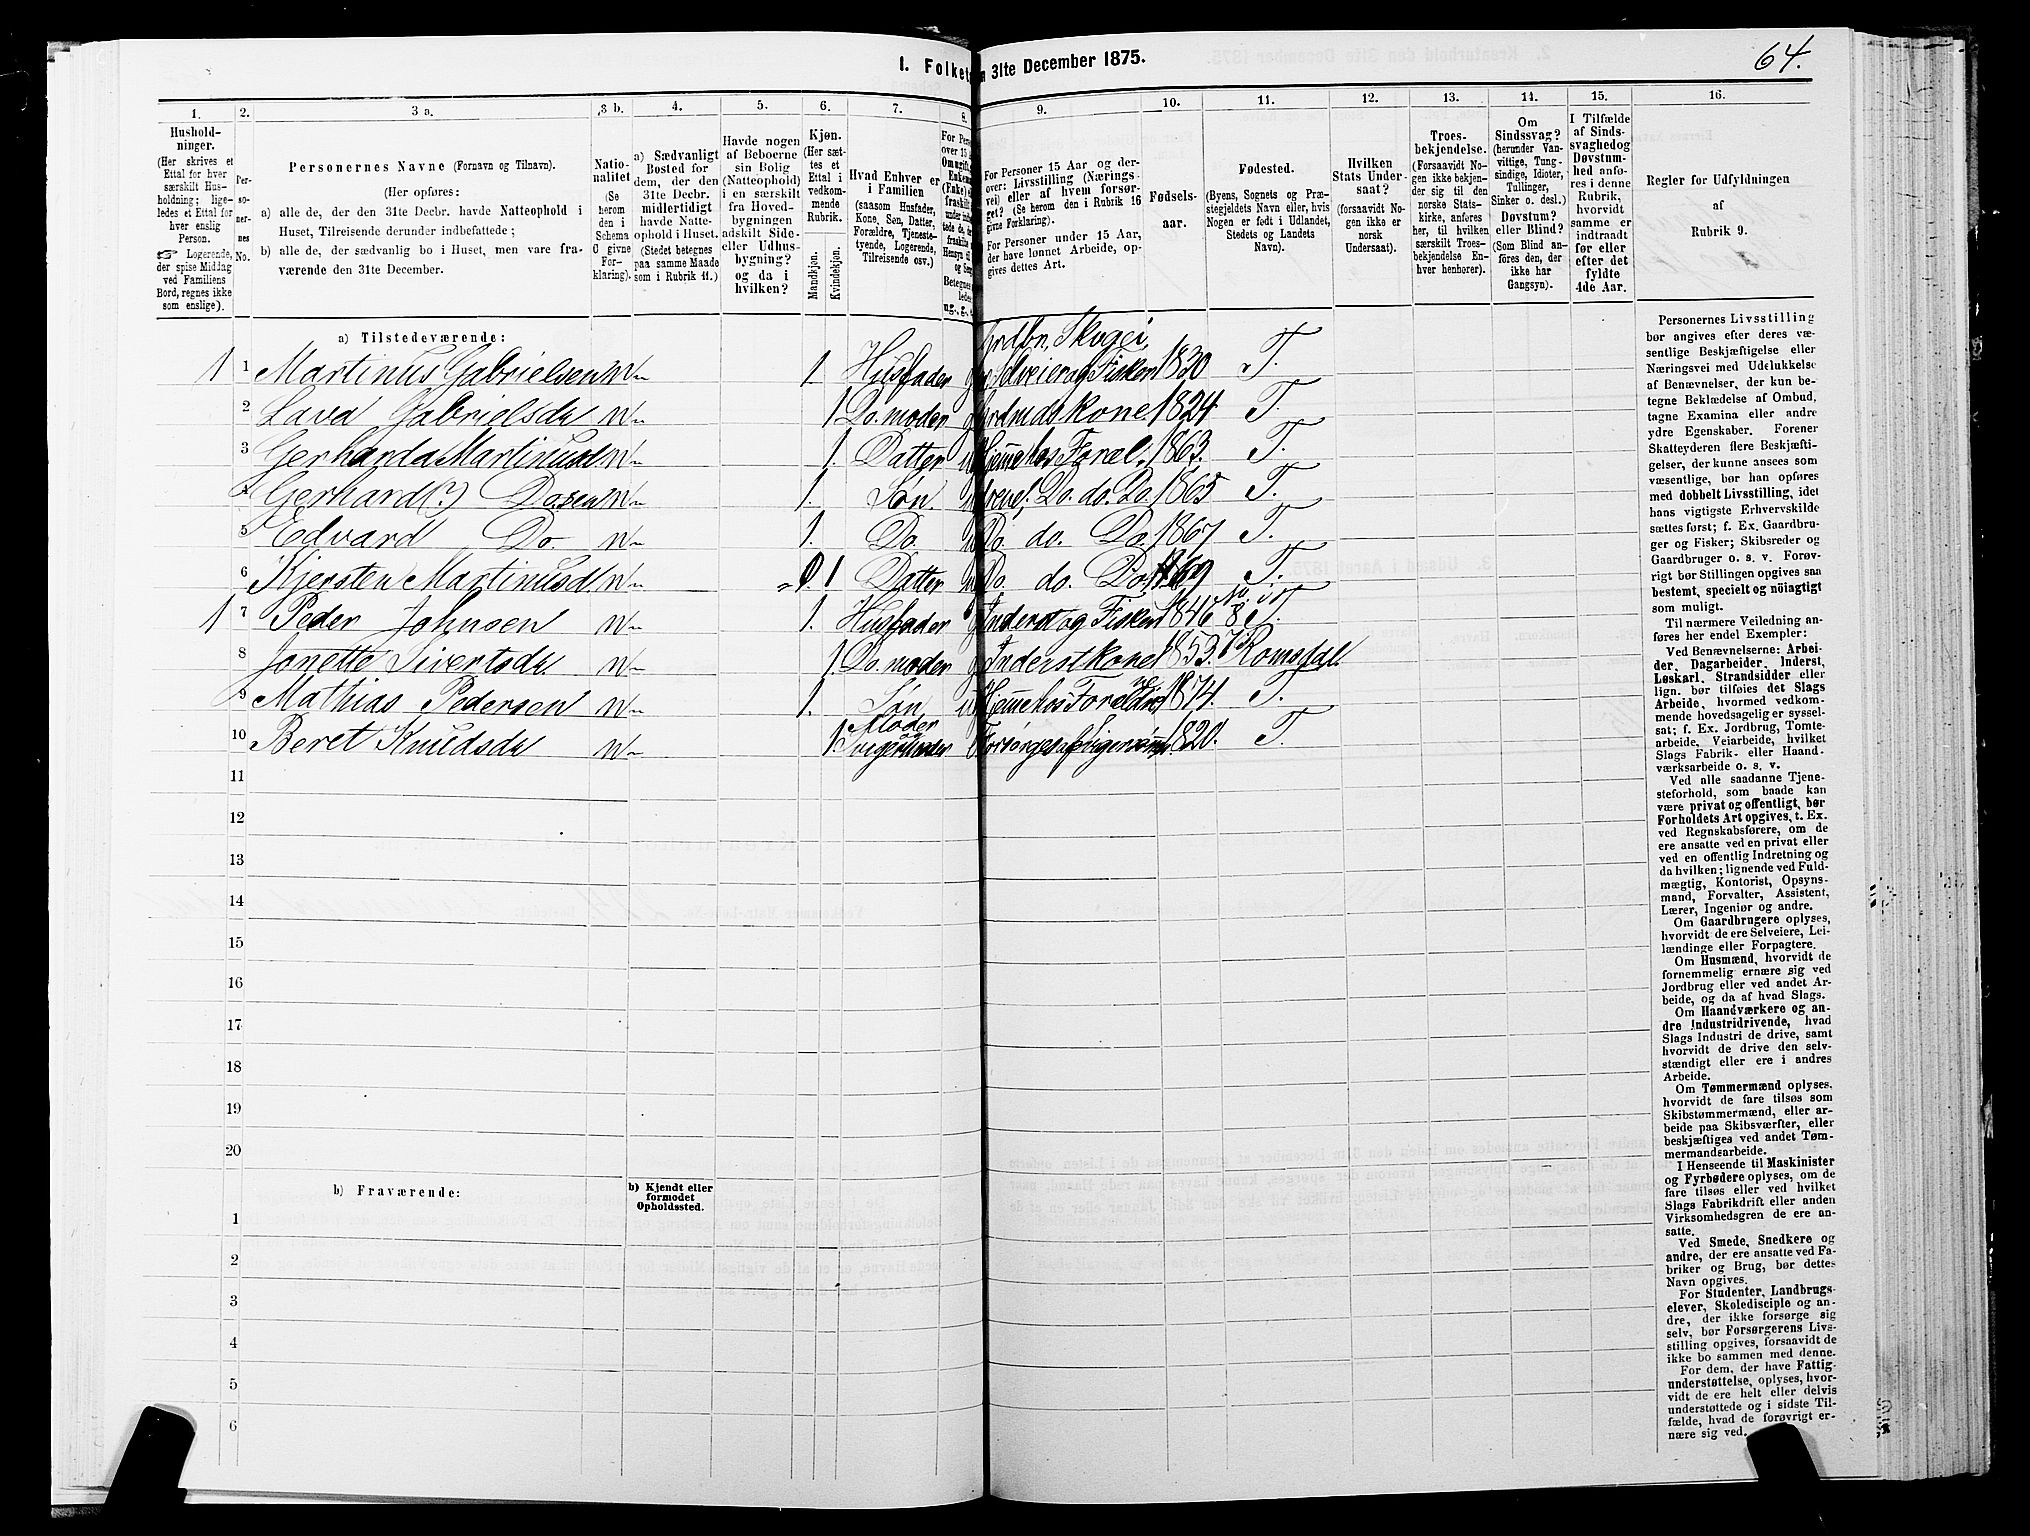 I. Folket
n 31te December 1875.
64.
1.
Hushold-
ninger.
(Her skrives et
Ettal for hver
særskilt Hus-
holdning; lige-
ledes et Ettal for
hver enslig
Person.
☞ Logerende,
der spise Middag
ved Familiens
Bord, regnes ikke
som enslige).
2.
Per-
so-
ner-
nes
No.
3 a.
Personernes Navne (Fornavn og Tilnavn).
(Her opføres:
a) alle de, der den 31te Decbr. havde Natteophold i
Huset, Tilreisende derunder indbefattede;
b) alle de, der sædvanlig bo i Huset, men vare fra-
værende den 31te December.
3 b.
Natio-
nalitet
(Se
herom
den i
Schema
O givne
For-
klaring).
4.
a) Sædvanligt
Bosted for
dem, der den
31te Decbr.
midlertidigt
havde Natte-
ophold i Huset.
(Stedet betegnes
paa samme Maade
som i Rubrik 11.)
5.
Havde nogen
af Beboerne
sin Bolig
(Natteophold)
i en særskilt
fra Hoved-
bygningen
adskilt Side-
eller Udhus-
bygning?
og da i
hvilken?
6.
Kjøn.
(Her sæt-
tes et
Ettal i
vedkom-
mende
Rubrik.
Mandkjøn.
Kvindekjøn.
7.
Hvad Enhver er
i Familien
(saasom Husfader,
Kone, Søn, Datter,
Forældre, Tjeneste-
tyende, Logerende,
Tilreisende osv.)
8.
For Pers
over 15 A
Omgift,
Enkem
(Enke) e
fraskilt
under ind
tede de, d
fraskilte
Hensyn ti
og Seng
Betegnes
ledes
ug., g., e
9.
For Personer 15 Aar og der-
over: Livsstilling (Nærings-
vei) eller af hvem forsør-
get? (Se herom den i Rubrik 16
givne Forklaring).
For Personer under 15 Aar,
der have lønnet Arbeide, op-
gives dettes Art.
10.
Fødsels-
aar.
11.
Fødested.
(Byens, Sognets og Præ-
stegjeldets Navn eller, hvis
Nogen er født i Udlandet,
Stedets og Landets
Navn).
12.
Hvilken
Stats Under-
saat?
(forsaavidt No-
gen ikke er
norsk
Undersaat).
13.
Troes-
bekjendelse.
(Forsaavidt No-
gen ikke bekjen-
der sig til den
norske Stats-
kirke, anføres
her, til hvilken
særskilt Troes-
bekjendelse En-
hver henhører).
14.
Om
Sindssvag?
(herunder Van-
vittige, Tung-
sindige, Idioter,
Tullinger,
Sinker o. desl.)
Døvstum?
eller Blind?
(Som Blind an-
føres den, der
ikke har
Gangsyn).
15.
I Tilfælde
af Sinds-
svaghedog
Døvstum-
hed anfø-
res i denne
Rubrik,
hvorvidt
samme er
indtraadt
før eller
efter det
fyldte
4de Aar.
16.
Regler for Udfyldningen
af
Rubrik 9.
a) Tilstedeværende:
Grdbr, Skogei,
1 1 Martinus Gabrielsen n 1. Husfader g Selveier og Fisker 1830 T.
2 Lava Gabrielsdr n 1. Do. moder g Grdmds kone 1824. T.
3 Gerharda Martinusd. n 1. Datter u Hjemme hos Foræl. 1863. T.
4 Gerhard(?) Do.sen n 1. Søn. Do. do. Do. 1865 T.
5 Edvard Do. n 1. Do. Do. do. Do. 1867 T.
6 Kjersten Martinusd. n 1 Datter Do. do. Do. 1869 T.
1 7 Peder Johnsen n 1. Husfader g Inderst og Fisker 1846 T.
8 Jonette Sivertsdr n 1. Do. moder g Inderstkone 1853. Romsdal.
9 Mathias Pedersen n 1. Søn u Hjemme hos Forældre 1874. T.
10 Beret Knudsdr n 1. Moder og Svigermoder 1820. T.
11
12
13
14
15
16
17
18
19
20
b) Fraværende:
b) Kjendt eller
formodet
Opholdssted.
1
2
3
4
5
6
Personernes Livsstilling
bør angives efter deres væ-
sentlige Beskjæftigelse eller
Næringsvei med Udelukkelse
af Benævnelser, der kun be-
tegne Beklædelse af Ombud,
tagne Examina eller andre
ydre Egenskaber. Forener
Skatteyderen flere Beskjæfti-
gelser, der kunne ansees som
væsentlige, bør han opføres
med dobbelt Livsstilling, idet
hans vigtigste Erhvervskilde
sættes først; f. Ex. Gaardbru-
ger og Fisker; Skibsreder og
Gaardbruger o. s. v. Forøv-
rigt bør Stillingen opgives saa
bestemt, specielt og nöiagtigt
som muligt.
Til nærmere Veiledning an-
føres her endel Exempler:
Ved Benævnelserne: Arbei-
der, Dagarbeider, Inderst,
Løskarl, Strandsidder eller
lign. bør tilføies det Slags
Arbeide, hvormed vedkom-
mende hovedsagelig er syssel-
sat; f. Ex. Jordbrug, Tomte-
arbeide, Veiarbeide, hvilket
Slags Fabrik- eller Haand-
værksarbeide o. s. v.
Ved alle saadanne Tjene-
steforhold, som baade kan
være privat og offentligt, bør
Forholdets Art opgives, t. Ex.
ved Regnskabsførere, om de
ere ansatte ved en privat eller
ved en offentlig Indretning og
da hvilken; lignende ved Fuld-
mægtig, Kontorist, Opsyns-
mand, Forvalter, Assistent,
Lærer, Ingeniør og andre.
Om Gaardbrugere oplyses,
hvorvidt de ere Selveiere, Lei-
lændinge eller Forpagtere.
Om Husmænd, hvorvidt de
fornemmelig ernære sig ved
Jordbrug eller ved andet Ar-
beide, og da af hvad Slags.
Om Haandværkere og an-
dre Industridrivende, hvad
Slags Industri de drive, samt
hvorvidt de drive den selv-
stændigt eller ere i andres
Arbeide.
Om Tømmermænd oplyses,
hvorvidt de fare tilsøs som
Skibstømmermænd, eller ar-
beide paa Skibsværfter, eller
beskjæftiges ved andet Tøm-
mermandsarbeide.
I Henseende til Maskinister
og Fyrbødere oplyses, om de
fare tilsøs eller ved hvilket
Slags Fabrikdrift eller anden
Virksomhedsgren de ere an-
satte.
Ved Smede, Snedkere og
andre, der ere ansatte ved Fa-
briker og Brug, bør dettes
Navn opgives.
For Studenter, Landbrugs-
elever, Skoledisciple og an-
dre, der ikke forsørge sig
selv, bør Forsørgerens Livs-
stilling opgives, forsaavidt de
ikke bo sammen med denne.
For dem, der have Fattig-
understøttelse, oplyses, hvor-
vidt de ere helt eller delvis
understøttede og i sidste Til-
fælde, hvad de forøvrigt er-
nære sig ved.